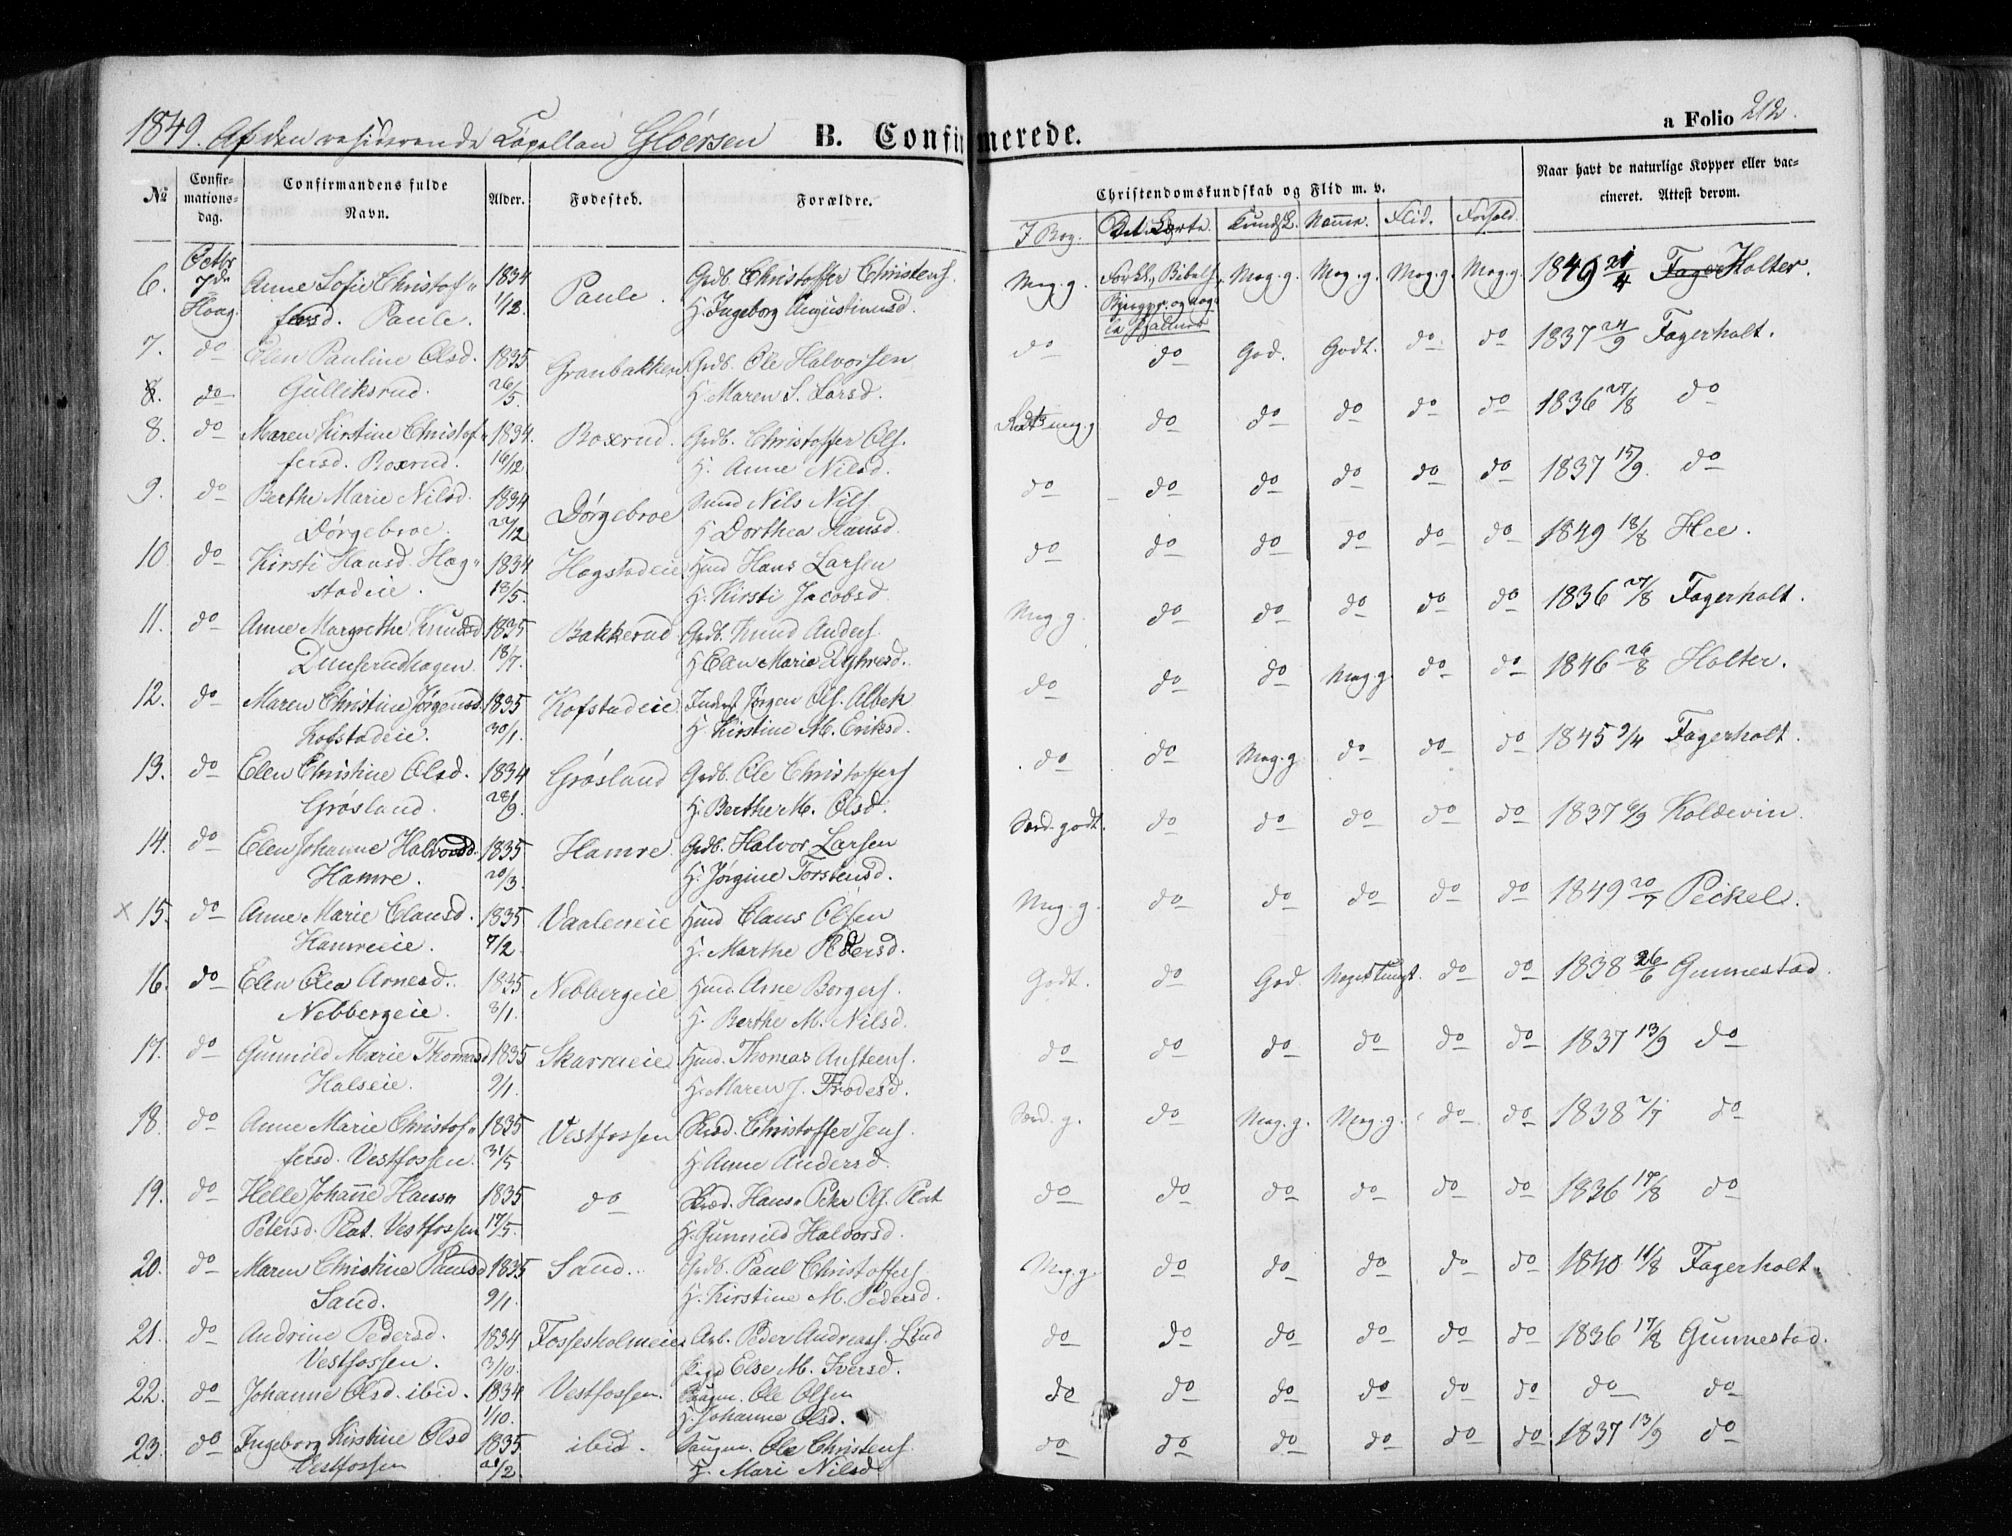 1849. Af den residerende Capellan Gløersen B. Confirmerede. a Folio 212.
No Confirmationsdag. Confirmandens fulde Navn. Alder. Fødested. Forældre. Christendomskundskab og Flid m. v. Naar havt de naturlige Kopper eller vaccineret. Attest derom.
I Bog. Kundsk. Nemme. Flid. Forhold.
6. Octbr 7de Haag Anne Sofie Christof" 1834 Paule. Grdb. Christoffer Christens. Meg. g. Forkl., Bibelh. Meg. g. Meg. g. Meg. g. Meg. g. 1849 21/4 Fager Holter.
fersd. Paule. 1/12 H. Ingeborg Augustinusd.
7. do Elen Pauline Olsd. 1835 Granbakken Grdb. Ole Halvorsen do do God. Godt. do do 1837 24/9 Fagerholt.
8. do Gulliksrud. 26/5 H. Maren S. Larsd. do do do do do 1836 27/8 do
8. do Maren Kirstine Christof" 1834. Boxrud. Grdb. Christoffer Ols.
fersd. Boxrud. 16/12 H. Anne Nilsd. do do do do do do 1837 15/9. do
9. do Berthe Marie Nilsd. 1834 Dørgebroe Nils Nils.
Dørgebroe. 27/12 H. Dorthea Hansd. do do do do do do 1849 18/8 Hee.
10. do Kirsti Hansd. Hog" 1834 Hogstadeie Hmd Hans Larsen
stadeie. 18/5. H. Kirsti Jacobsd. Meg g. do do do do do 1836 27/8 Fagerholt.
11. do Anne Margrethe Knudsd 1835 Bakkerud Grdb. Knud Anders.
Dunserudhagen. 18/7. H. Elen Marie do do do Meg. g. do do 1846 26/8 Holter.
12. do Maren Christine Jørgensd. 1835 Hofstadeie Inderst Jørgen Ols. Albek
Hofstadeie. 30/1. H. Kirstine M. Eriksd. do do Meg. g do do do 1845 9/4 Fagerholt.
13. do Elen Christine Olsd. 1834 Grøsland Grdb. Ole Christoffers
Grøsland. 28/9. H. Berthe M. Olsd. Særd. godt. do do do do do 1837 6/9 Koldevin.
14. do Elen Johanne Halvorsd. 1835 Hamre. Grdb. Halvor Larsen
Hamre. 20/3. H. Jørgine Torstensd. Meg. g. do do do do do 1849 20/7 Peckel.
x 15. do Anne Marie Clausd. 1835 Vaaleneie Hmd Claus Olsen
Hamreeie. 7/2. H. Marthe Pedersd. Godt. do God. Noget tungt. do do 1838 26/6 Gunnestad.
16. do Elen Olea Arnesd. 1835 Nebbergeie Hmd. Arne Borgers.
Nebbergeie. 8/1. H. Berthe M. Nilsd. do do do do do do 1837 13/9 do
17. do Gunnild Marie Thomasd 1835 Skarraeie Hmd. Thomas Austeens.
Halseie. 9/1. H. Maren J. Frodesd. Særd. g. do Meg. g. Meg. g. do do 1838 2/7 do
18. do Anne Marie Christof" 1835 Vestfossen Christoffer Jens.
fersd. Vestfossen. 31/5 H. Anne Andersd. do do do do do do 1836 17/8 do
19. do Helle Johanne Hans" 1835 do Hans Peter Ols. Plat
Petersd. Plat. Vestfossen 17/5. H. Gunnild Halvorsd.
20. do Maren Christine Paulsd 1835 Sand. Grdb. Paul Christoffers. Meg. g do do do do do 1840 11/8 Fagerholt.
Sand. 9/1. H. Kirstine M. Pedersd.
21. do Andrine Pedersd. 1834 Fossesholmeie Arb. Peder Andreas. Lind do do do do do do 1836 17/8 Gunnestad.
Vestfossen. 3/10. Pige Else M. Iversd.
22. do Johanne Olsd. ibid. 1834 Vestfossen. Ole Olsen do do do do do do do do
1/10. H. Johanne Olsd.
23. do Ingeborg Kirstine Olsd 1835 ibid. Saugm. Ole Christens. do do do do do do 1837 13/9 do
Vestfossen H. Mari Nilsd.